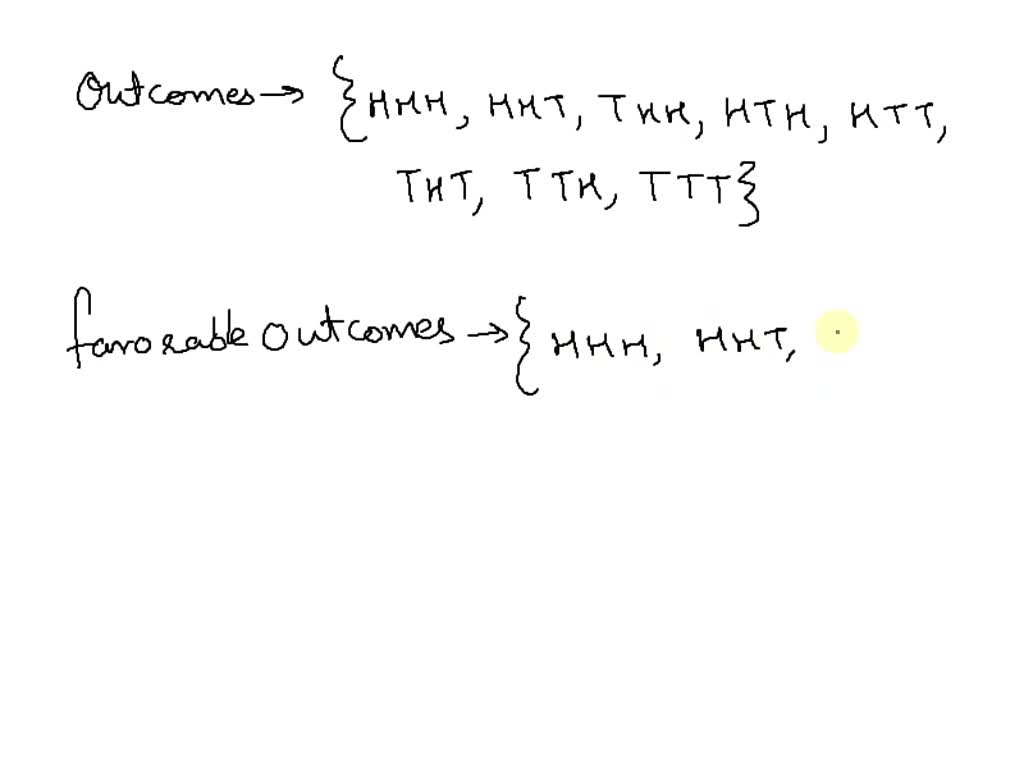 Outcomes → {HHH, HHT, THH, HTH, HTT,
THT, TTH, TTT}
favorable outcomes → {HHH, HHT,